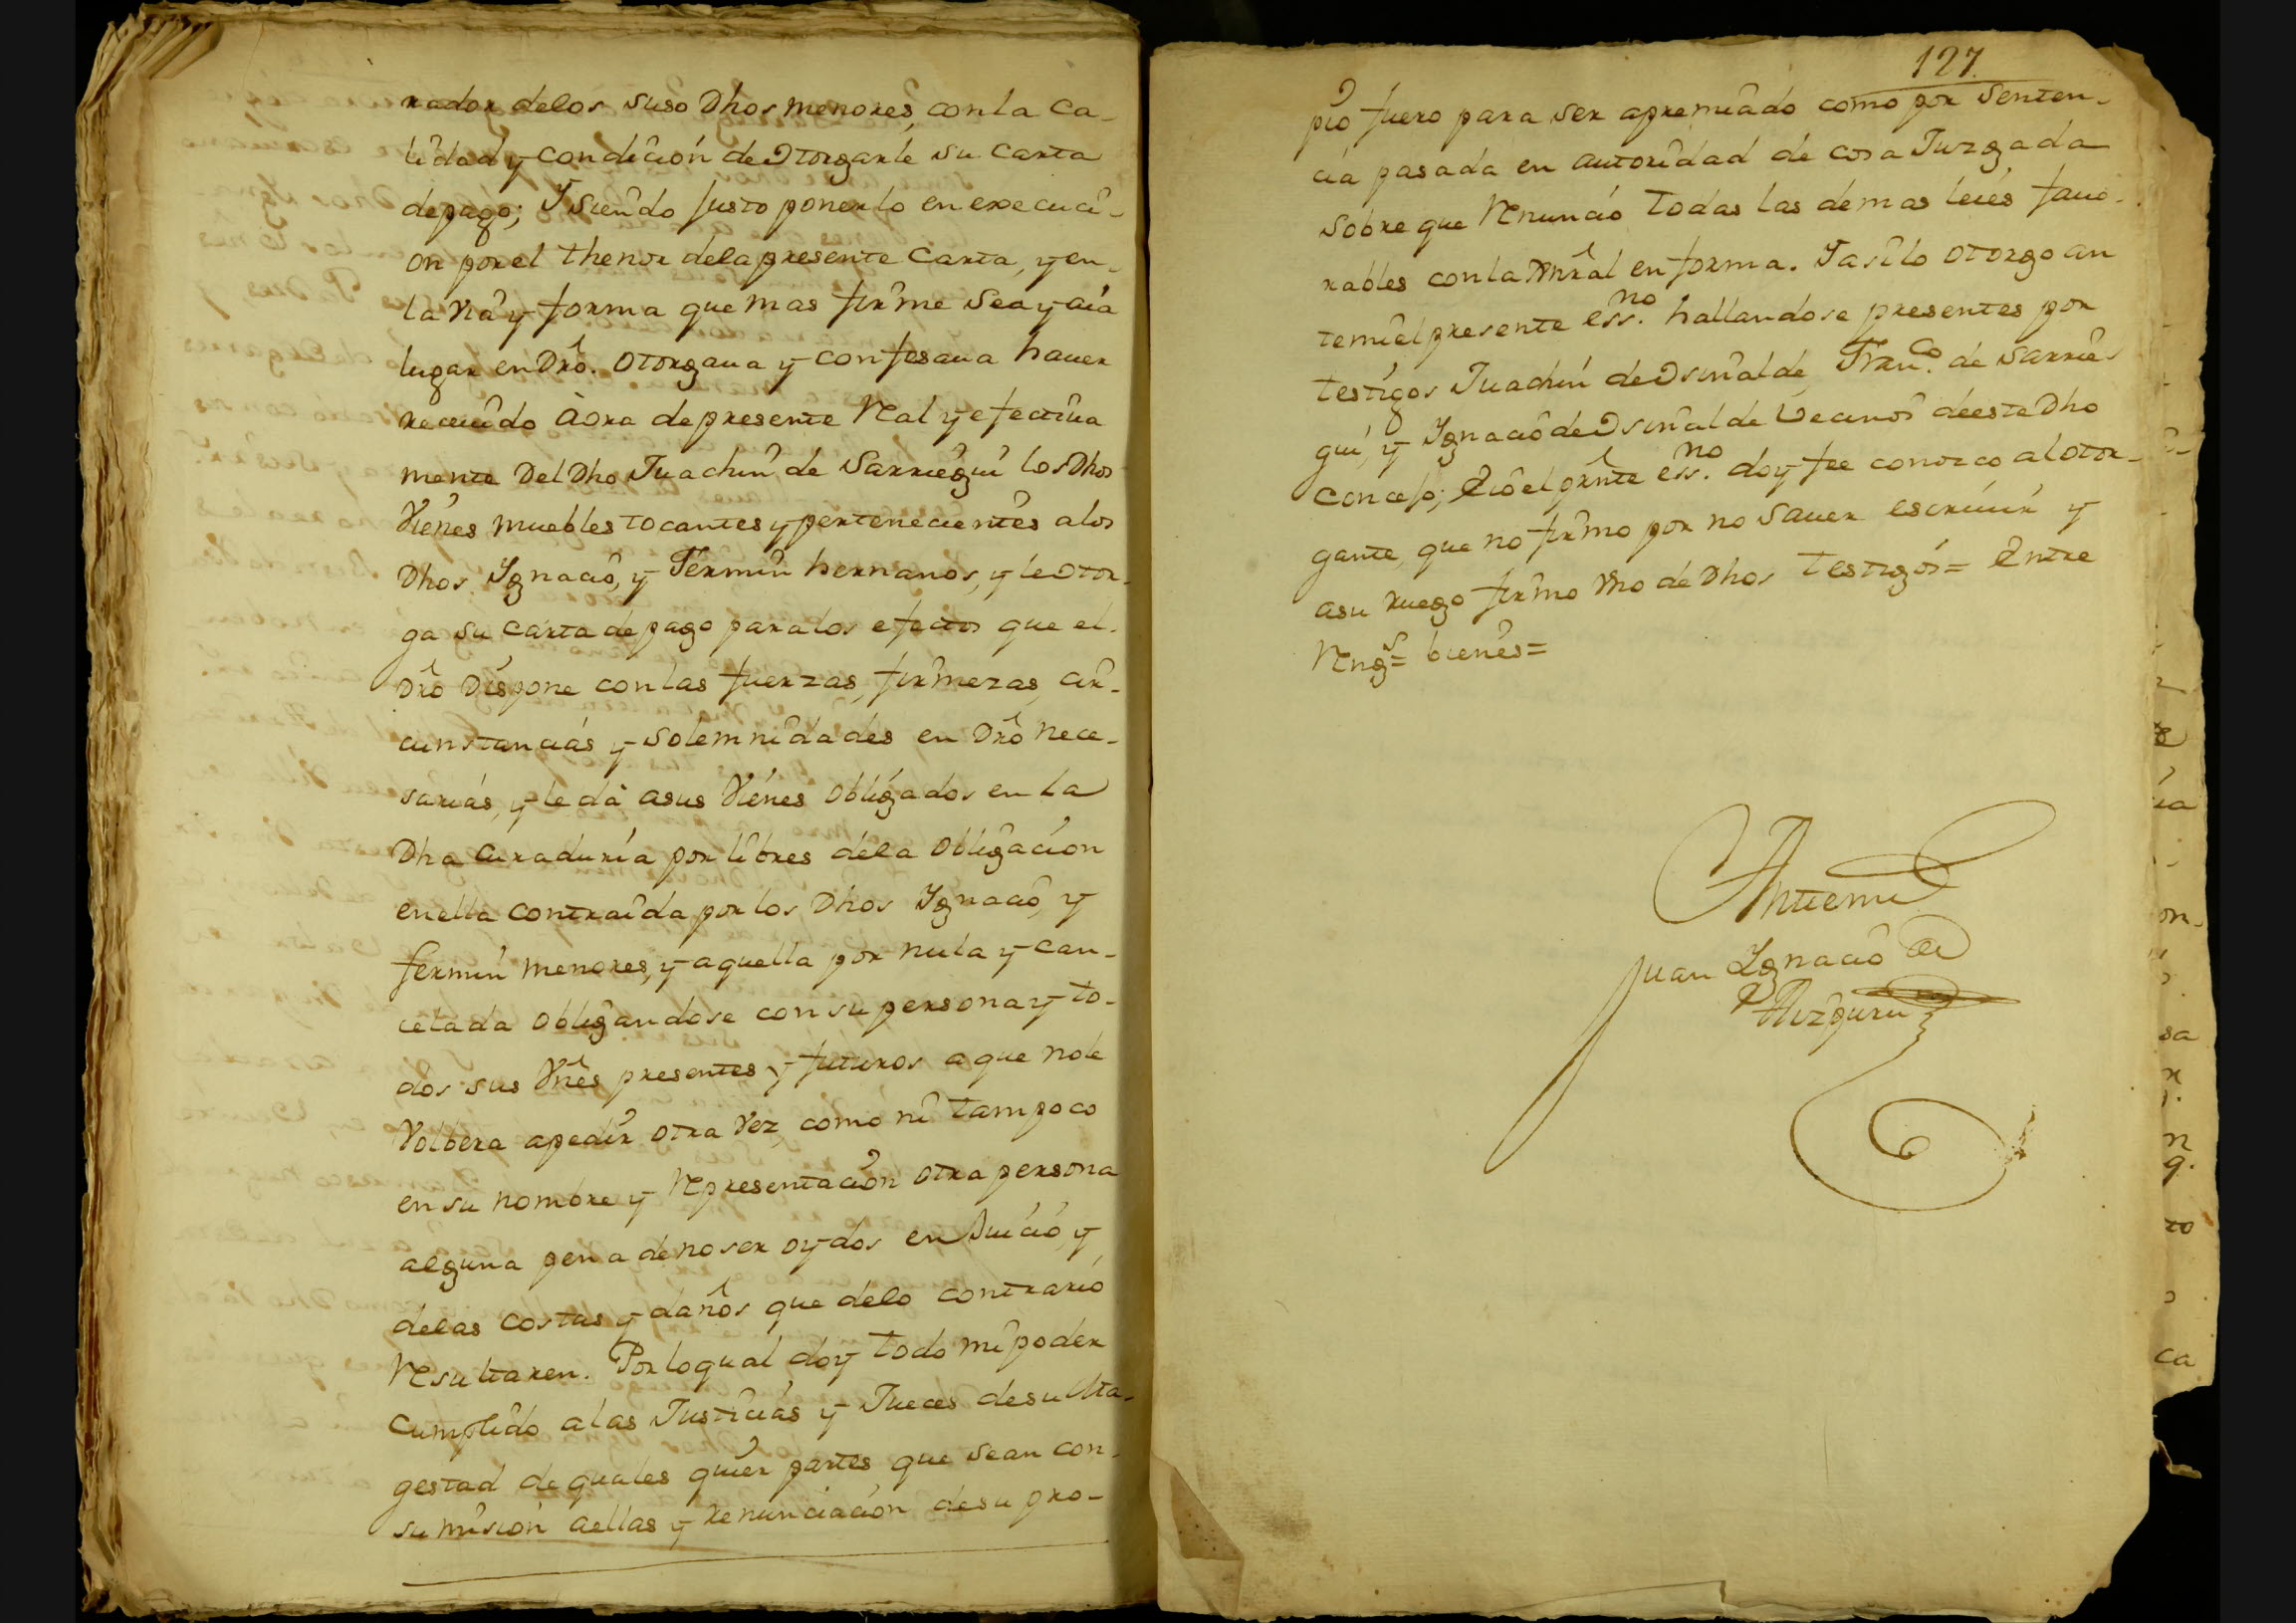 rador delos suso Dhos menores, con la ca-
lidad y condicion de Otorgarle su carta
de pago; Y siendo justo ponerlo en execuci-
on por el thenor dela presente Carta, y en-
la Via y forma que mas firme sea y aia
lugar en Dro. Otorgaua y confesaua hauer
receuido àora de presente Real y efectiua
mente Del Dho Juachin de Sarriegui los Dhos
Vienes muebles tocantes y pertenecientes a los
Dhos Ygnacio, y Fermin hermanos, y le Otor-
ga su carta de pago para los efectos que el
Dro Dispone con las fuerzas, firmezas, cir-
cunstancias y solemnidades en Dro nece-
sarias, y le dà a sus Vienes obligados en la
Dha Curaduria por libres dela obligacion
en ella contraida por los Dhos Ygnacio, y
fermin menores, y aquella por nula y can-
celada obligandose con su persona y to-
dos sus Vnês presentes y futuros a que no le
Volbera a pedir otra Vez, como ni tampoco
en su nombre y Representacion otra persona
alguna pena de no ser oydos en Juicio, y
delas costas y daños que delo contrario
Resultaren. Por lo qual doy todo mi poder
Cumplido a las Justicias y Jueces de su Mta-
gestad de quales quier partes que sean con-
sumision a ellas y renunciacion de su pro-
127
pio fuero para ser apremiado como por senten-
cia pasada en autoridad de cosa Juzgada
sobre que Renuncio todas las demas leies fauo-
rables con la Gnrâl en forma. Y asi lo otorgo an
temi el presente ess.no hallandose presentes por
testigos Juachin de Osinalde, Fran.co de Sarrie-
gui, y Ygnacio de Osinalde Vecinos de este Dho
Concejo; E io el prnte ess.no doy fee conozco al otor-
gante, que no firmo por no sauer escriuir y
a su ruego firmo Vno de Dhos testigos = Entre
Rengs = bienes =
Antemi
Juan Ygnacio de
Aizpuru